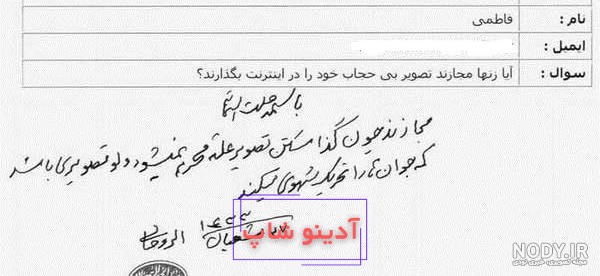 نام : فاطمی
ایمیل :
سوال : آیا زنها مجازند تصویر بی حجاب خود را در اینترنت بگذارند؟
باسمه جلت اسمائه
مجازند چون گذاشتن تصویر علت محرمه نمیشود ولو تصویری باشد
که جوان را تحریک شهوی میکند
شعبان ۱۴۳۳ الروحانی
آدینو شاپ
NODY.IR